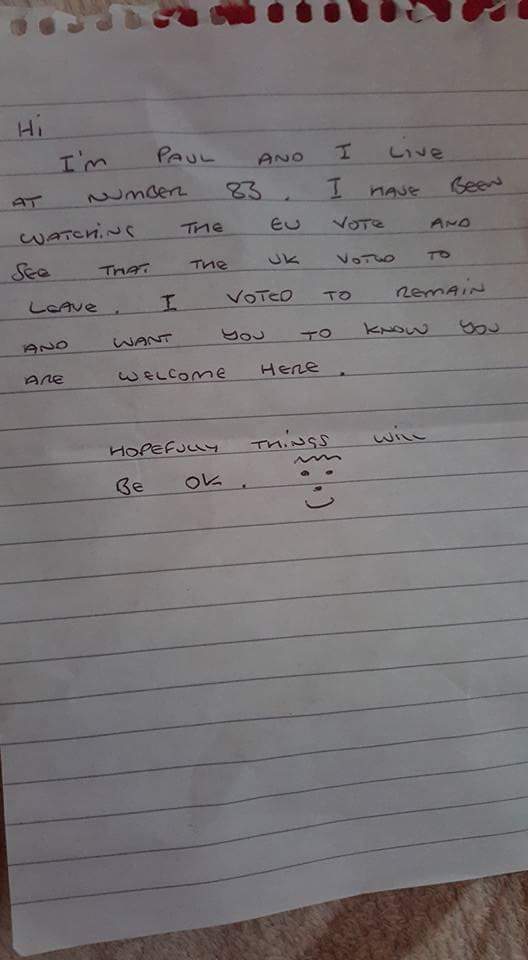 Hi
I'm PAUL AND I LIVE
AT NUMBER 83. I HAVE BEEN
WATCHING THE EU VOTE AND
SEE THAT THE UK VOTED TO
LEAVE. I VOTED TO REMAIN
AND WANT YOU TO KNOW YOU
ARE WELCOME HERE.
HOPEFULLY THINGS WILL
BE OK.